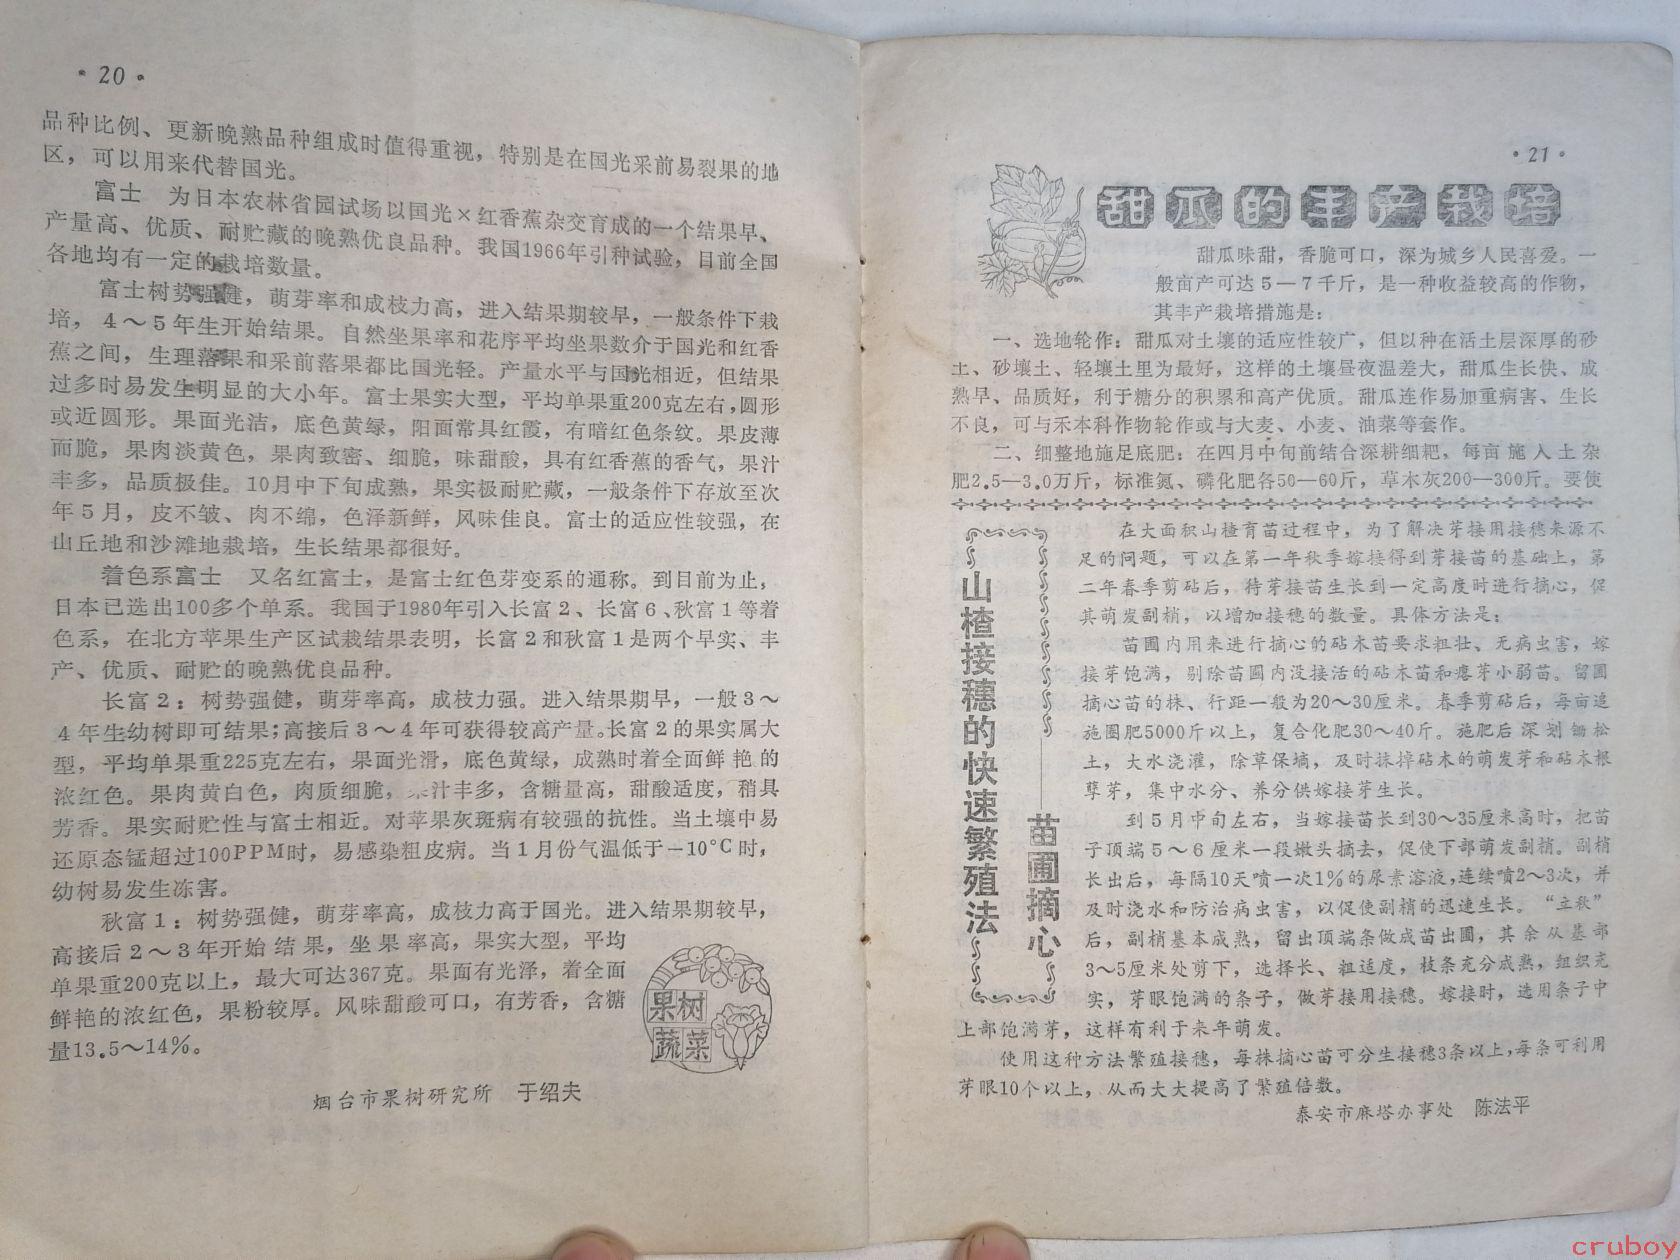 ·20·
品种比例、更新晚熟品种组成时值得重视，特别是在国光采前易裂果的地
区，可以用来代替国光。
富士　为日本农林省园试场以国光×红香蕉杂交育成的一个结果早、
产量高、优质、耐贮藏的晚熟优良品种。我国1966年引种试验，目前全国
各地均有一定的栽培数量。
富士树势强健，萌芽率和成枝力高，进入结果期较早，一般条件下栽
培，4～5年生开始结果。自然坐果率和花序平均坐果数介于国光和红香
蕉之间，生理落果和采前落果都比国光轻。产量水平与国光相近，但结果
过多时易发生明显的大小年。富士果实大型，平均单果重200克左右，圆形
或近圆形。果面光洁，底色黄绿，阳面常具红霞，有暗红色条纹。果皮薄
而脆，果肉淡黄色，果肉致密、细脆，味甜酸，具有红香蕉的香气，果汁
丰多，品质极佳。10月中下旬成熟，果实极耐贮藏，一般条件下存放至次
年5月，皮不皱、肉不绵，色泽新鲜，风味佳良。富士的适应性较强，在
山丘地和沙滩地栽培，生长结果都很好。
着色系富士　又名红富士，是富士红色芽变系的通称。到目前为止，
日本已选出100多个单系。我国于1980年引入长富2、长富6、秋富1等着
色系，在北方苹果生产区试栽结果表明，长富2和秋富1是两个早实、丰
产、优质、耐贮的晚熟优良品种。
长富2：树势强健，萌芽率高，成枝力强。进入结果期早，一般3～
4年生幼树即可结果；高接后3～4年可获得较高产量。长富2的果实属大
型，平均单果重225克左右，果面光滑，底色黄绿，成熟时着全面鲜艳的
浓红色。果肉黄白色，肉质细脆，果汁丰多，含糖量高，甜酸适度，稍具
芳香。果实耐贮性与富士相近。对苹果灰斑病有较强的抗性。当土壤中易
还原态锰超过100PPM时，易感染粗皮病。当1月份气温低于－10°C时，
幼树易发生冻害。
秋富1：树势强健，萌芽率高，成枝力高于国光。进入结果期较早，
高接后2～3年开始结果，坐果率高，果实大型，平均
单果重200克以上，最大可达367克。果面有光泽，着全面
鲜艳的浓红色，果粉较厚。风味甜酸可口，有芳香，含糖
量13.5～14%。
果树
蔬菜
烟台市果树研究所　于绍夫
·21·
甜瓜的丰产栽培
甜瓜味甜，香脆可口，深为城乡人民喜爱。一
般亩产可达5－7千斤，是一种收益较高的作物，
其丰产栽培措施是：
一、选地轮作：甜瓜对土壤的适应性较广，但以种在活土层深厚的砂
土、砂壤土、轻壤土里为最好，这样的土壤昼夜温差大，甜瓜生长快、成
熟早、品质好，利于糖分的积累和高产优质。甜瓜连作易加重病害、生长
不良，可与禾本科作物轮作或与大麦、小麦、油菜等套作。
二、细整地施足底肥：在四月中旬前结合深耕细耙，每亩施入土杂
肥2.5—3.0万斤，标准氮、磷化肥各50—60斤，草木灰200—300斤。要使
山楂接穗的快速繁殖法
——苗圃摘心
在大面积山楂育苗过程中，为了解决芽接用接穗来源不
足的问题，可以在第一年秋季嫁接得到芽接苗的基础上，第
二年春季剪砧后，待芽接苗生长到一定高度时进行摘心，促
其萌发副梢，以增加接穗的数量。具体方法是：
苗圃内用来进行摘心的砧木苗要求粗壮、无病虫害，嫁
接芽饱满，剔除苗圃内没接活的砧木苗和瘪芽小弱苗。留圃
摘心苗的株、行距一般为20～30厘米。春季剪砧后，每亩追
施圈肥5000斤以上，复合化肥30～40斤。施肥后深划锄松
土，大水浇灌，除草保墒，及时抹掉砧木的萌发芽和砧木根
孽芽，集中水分、养分供嫁接芽生长。
到5月中旬左右，当嫁接苗长到30～35厘米高时，把苗
子顶端5～6厘米一段嫩头摘去，促使下部萌发副梢。副梢
长出后，每隔10天喷一次1%的尿素溶液，连续喷2～3次，并
及时浇水和防治病虫害，以促使副梢的迅速生长。“立秋”
后，副梢基本成熟，留出顶端条做成苗出圃，其余从基部
3～5厘米处剪下，选择长、粗适度，枝条充分成熟，组织充
实，芽眼饱满的条子，做芽接用接穗。嫁接时，选用条子中
上部饱满芽，这样有利于来年萌发。
使用这种方法繁殖接穗，每株摘心苗可分生接穗3条以上，每条可利用
芽眼10个以上，从而大大提高了繁殖倍数。
泰安市麻塔办事处　陈法平
cruboy